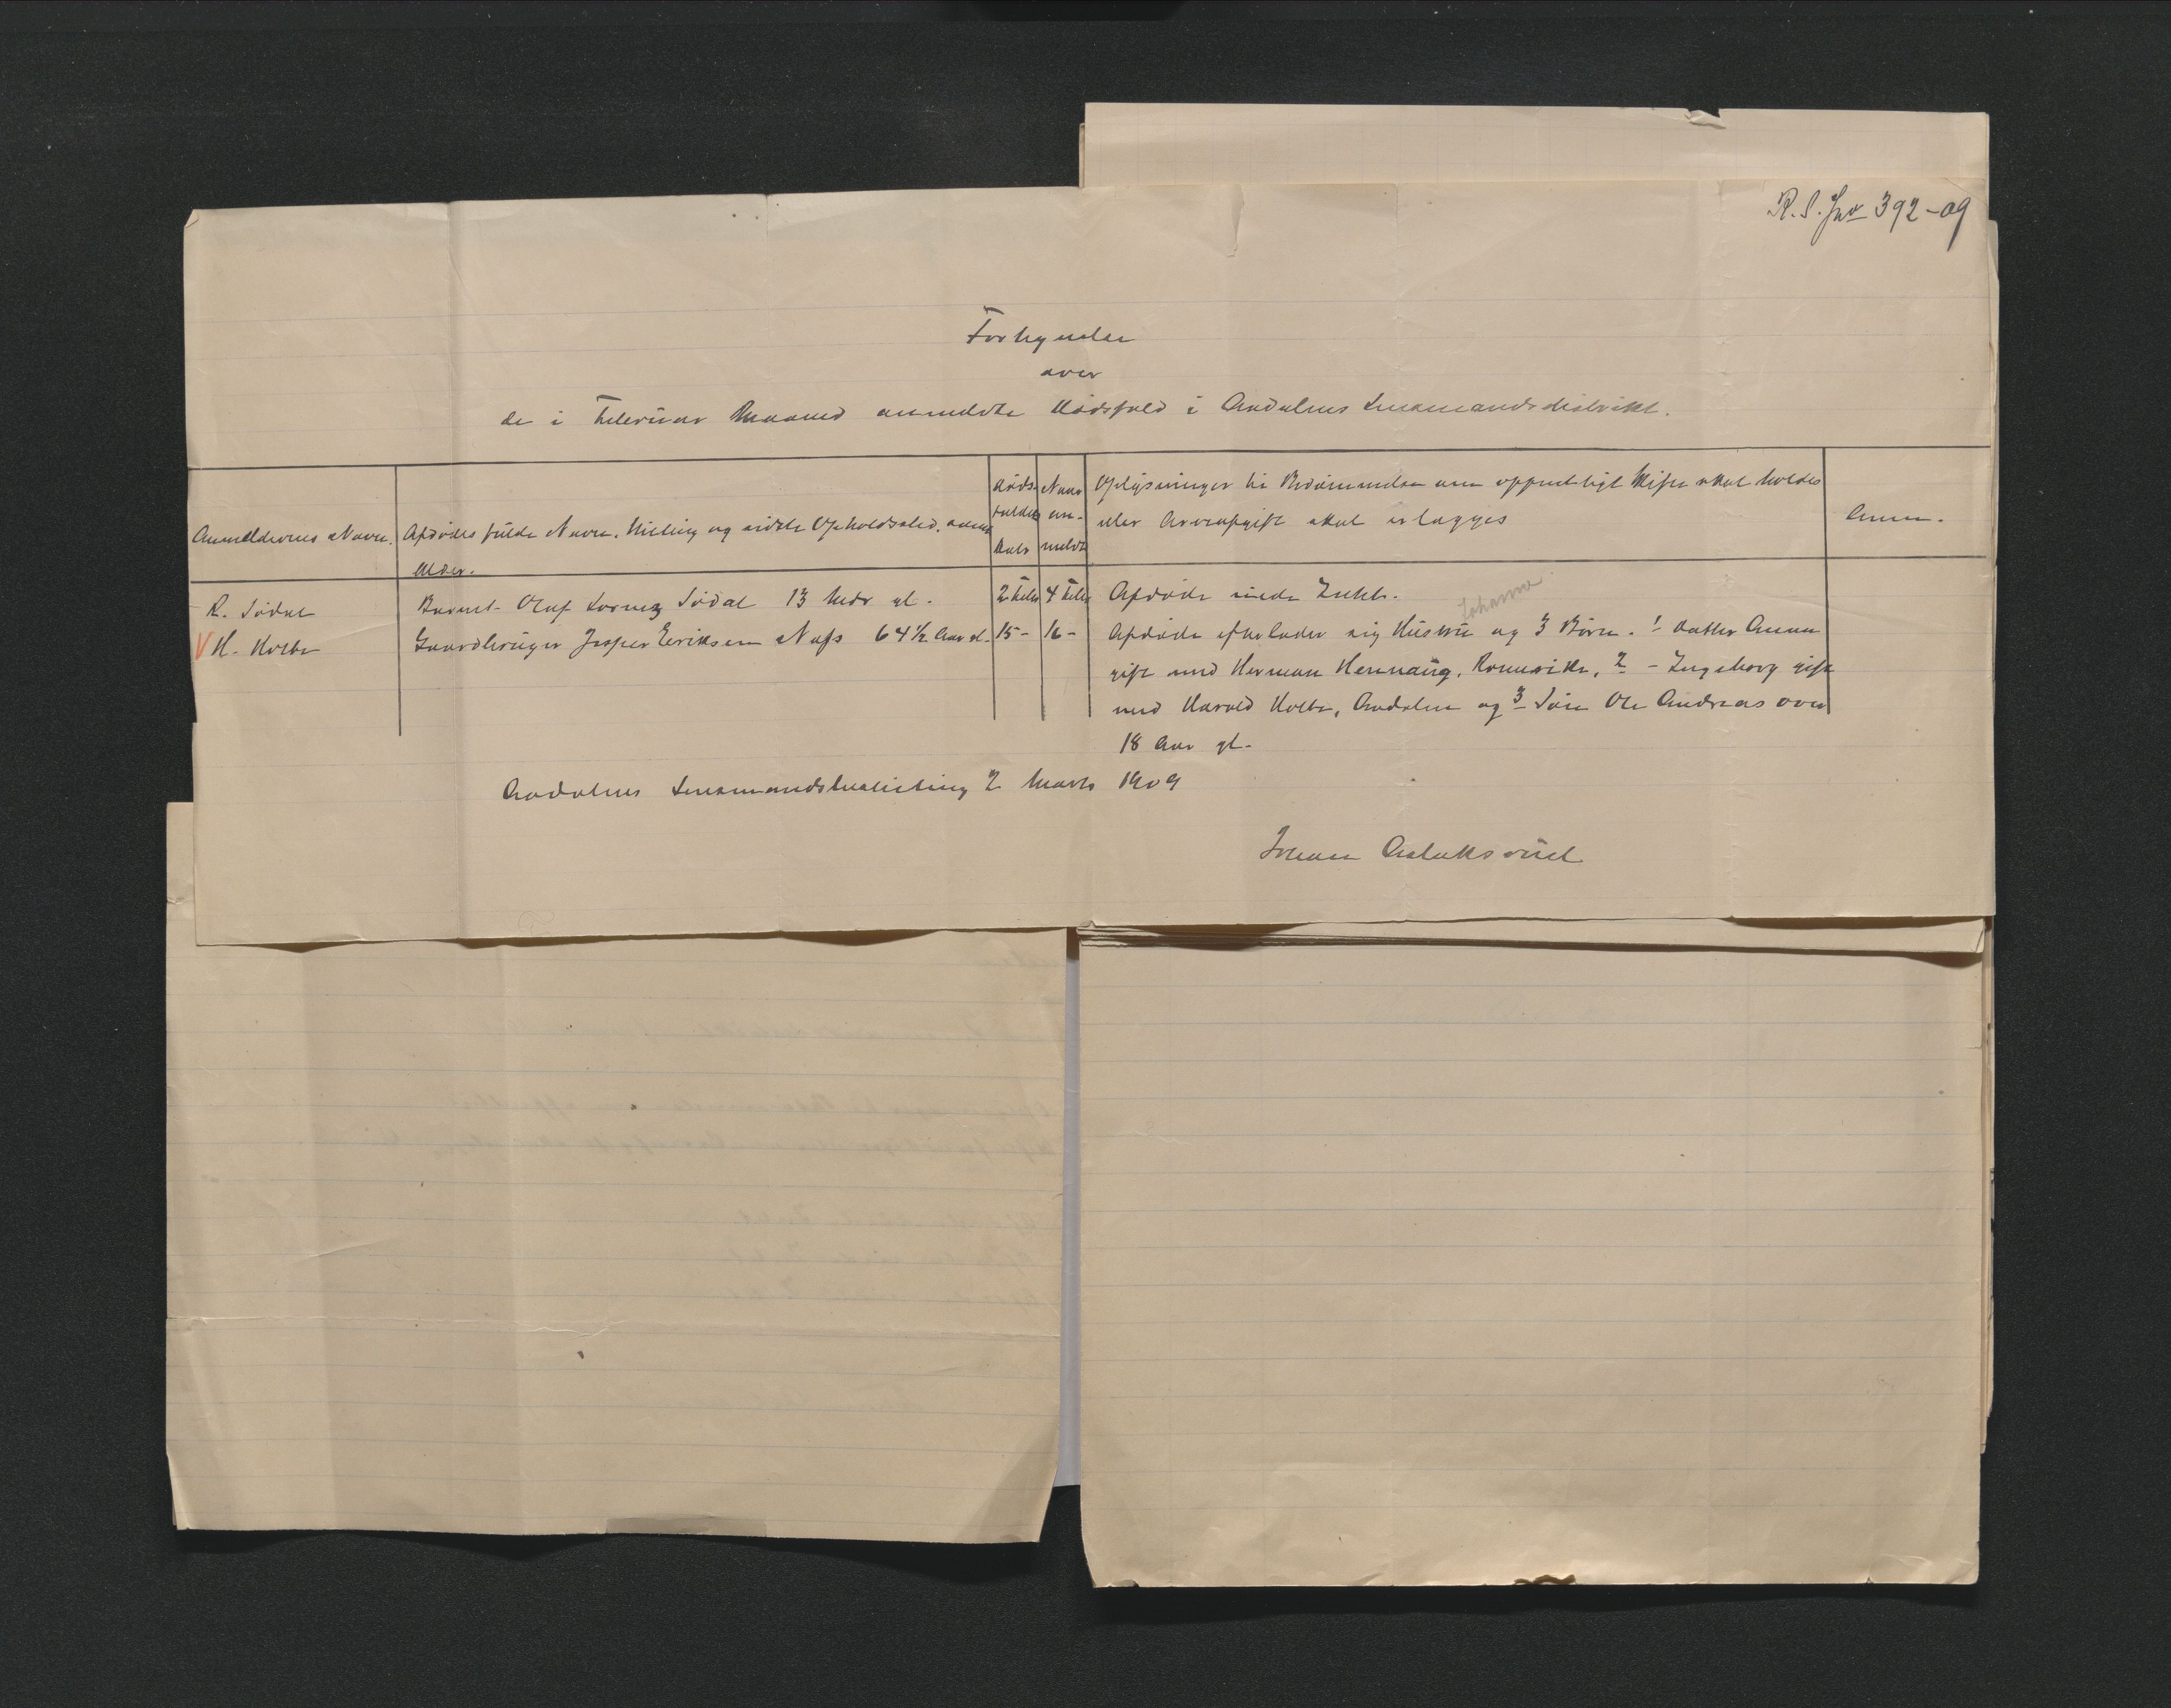 R. S. Jno 392-09
Fortegnelse
over
de i Februar Maaned anmeldte Dødsfald i Aadalens Lensmandsdistrikt.
Anmelderens Navn.
Afdødes fulde Navn, Stilling og sidste Opholdssted, samt
Alder.
Døds-
faldets
Dato
Naar
an-
meldt
Oplysninger til Bedømmelse om offentligt Skifte skal holdes
eller Arveafgift skal erlægges
Anm.
R. Sødal
Barnet Oluf Sødal 13 Mdr gl.
2 Febr
4 Febr
Afdøde eiede Intet.
Johanna
V H. Holte
Gaardbruger Jesper Eriksen Næss 64 1/2 Aar gl.
15 -
16 -
Afdøde efterlader sig Hustru og 3 Børn. 1 - Datter Anna
gift med Herman Hennaug, Romerike, 2 - Ingeborg gift
med Harald Holte, Aadalen og 3 - Søn Ole Andreas over
18 Aar gl.
Aadalens Lensmandsbestilling 2 Marts 1909
Johan Aslaksrud